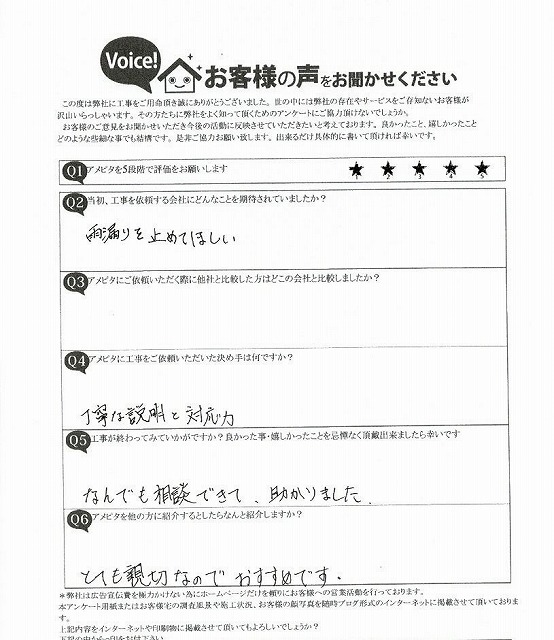 Voice!
お客様の声をお聞かせください
この度は弊社に工事をご用命頂き誠にありがとうございました。世の中には弊社の存在やサービスをご存知ないお客様が
沢山いらっしゃいます。その方たちに弊社をよく知って頂くためのアンケートにご協力頂けないでしょうか。
お客様のご意見をお聞かせいただき今後の活動に反映させていただきたいと考えております。良かったこと、嬉しかったこと
どのような些細な事でも結構です。是非ご協力お願い致します。出来るだけ具体的に書いて頂ければ幸いです。
Q1 アメピタを5段階で評価をお願いします ★ ★ ★ ★ ★
1 2 3 4 5
Q2 当初、工事を依頼する会社にどんなことを期待されていましたか?
雨漏りを止めてほしい
Q3 アメピタにご依頼いただく際に他社と比較した方はどこの会社と比較しましたか?
Q4 アメピタに工事をご依頼いただいた決め手は何ですか?
丁寧な説明と対応力
Q5 工事が終わってみていかがですか?良かった事・嬉しかったことを忌憚なく頂蔵出来ましたら幸いです
なんでも相談できて、助かりました.
Q6 アメピタを他の方に紹介するとしたらなんと紹介しますか?
とても親切なのでおすすめです.
*弊社は広告宣伝費を極力かけない為にホームページだけを頼りにお客様への営業活動を行っております。
本アンケート用紙またはお客様宅の調査風景や施工状況、お客様の顔写真を随時ブログ形式のインターネットに掲載させて頂いております。
上記内容をインターネットや印刷物に掲載させて頂いてもよろしいでしょうか?